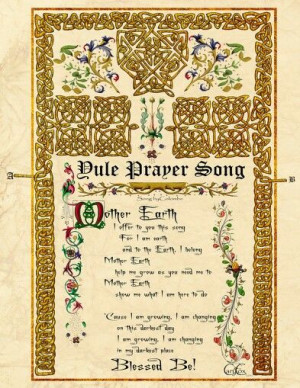 Yule Prayer Song
Song by Colombe
A
B
Mother Earth
I offer to you this song
For I am earth
and to the Earth, I belong
Mother Earth
help me grow as you need me to
Mother Earth
show me what I am here to do
'Cause I am growing, I am changing
on this darkest day
I am growing, I am changing
in my darkest place
Blessed Be!